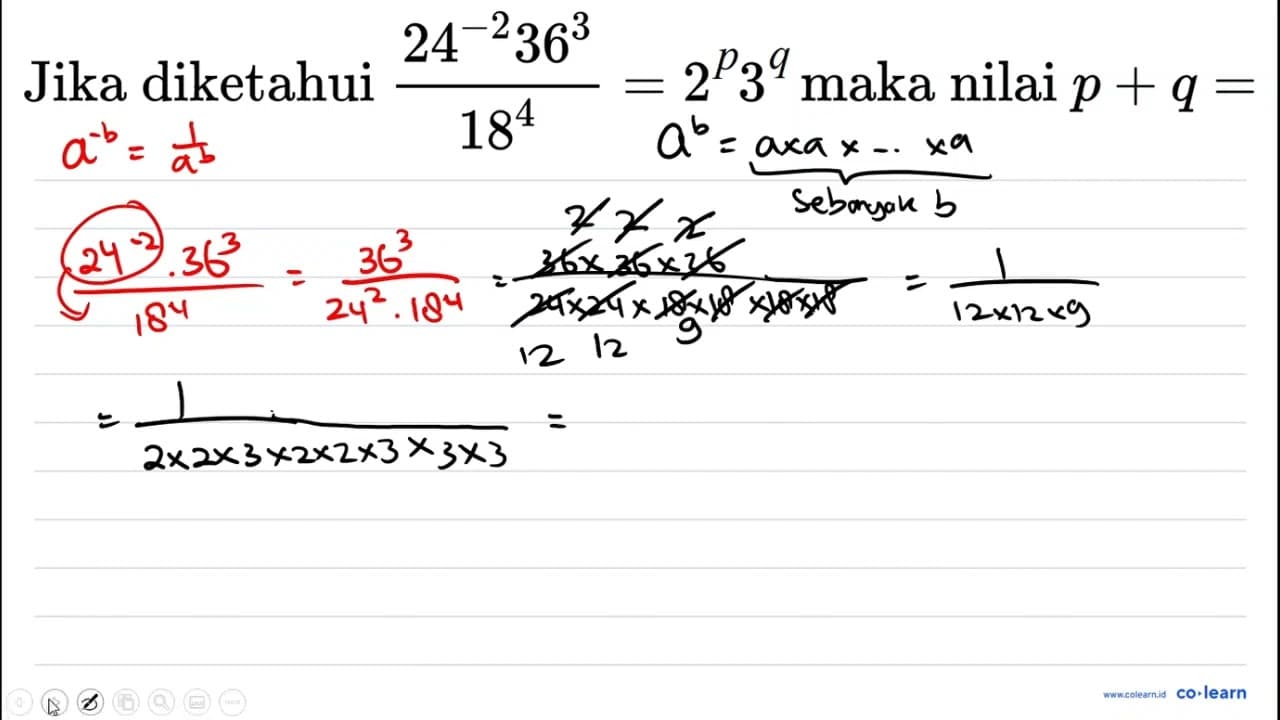 Jika diketahui \frac{24^{-2}36^{3}}{18^{4}} = 2^{p}3^{q} maka nilai p + q =
a^{-b} = \frac{1}{a^{b}}
a^{b} = a×a×-..×a
Sebanyak b
\frac{24^{-2}.36^{3}}{18^{4}} = \frac{36^{3}}{24^{2}.18^{4}} = \frac{36×36×36}{24×24×18×18×18×18} = \frac{1}{12×12×9}
2 2 2
12 12 9
= \frac{1}{2×2×3×2×2×3×3×3} =
www.colearn.id co·learn